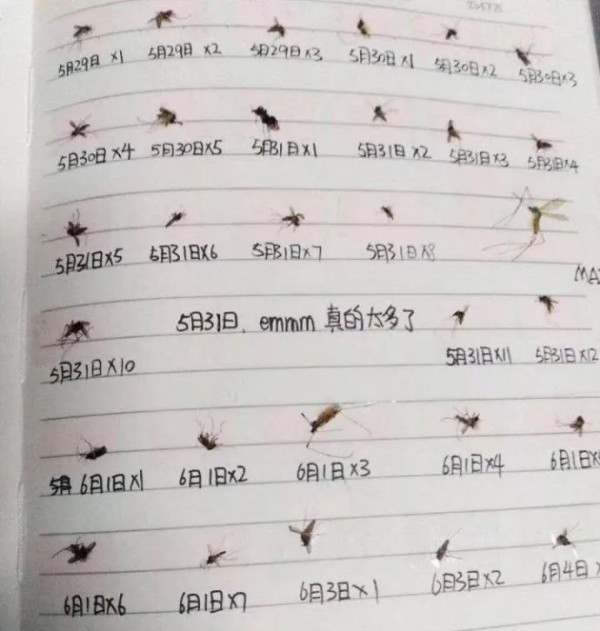 DATE
5月29日 x1 5月29日 x2 5月29日 x3 5月30日 x1 5月30日 x2 5月30日 x3
5月30日 x4 5月30日 x5 5月31日 x1 5月31日 x2 5月31日 x3 5月31日 x4
5月31日 x5 5月31日 x6 5月31日 x7 5月31日 x8
5月31日 x10 5月31日, emmm 真的太多了 5月31日 x11 5月31日 x12
6月1日 x1 6月1日 x2 6月1日 x3 6月1日 x4 6月1日
6月1日 x6 6月1日 x7 6月3日 x1 6月3日 x2 6月4日